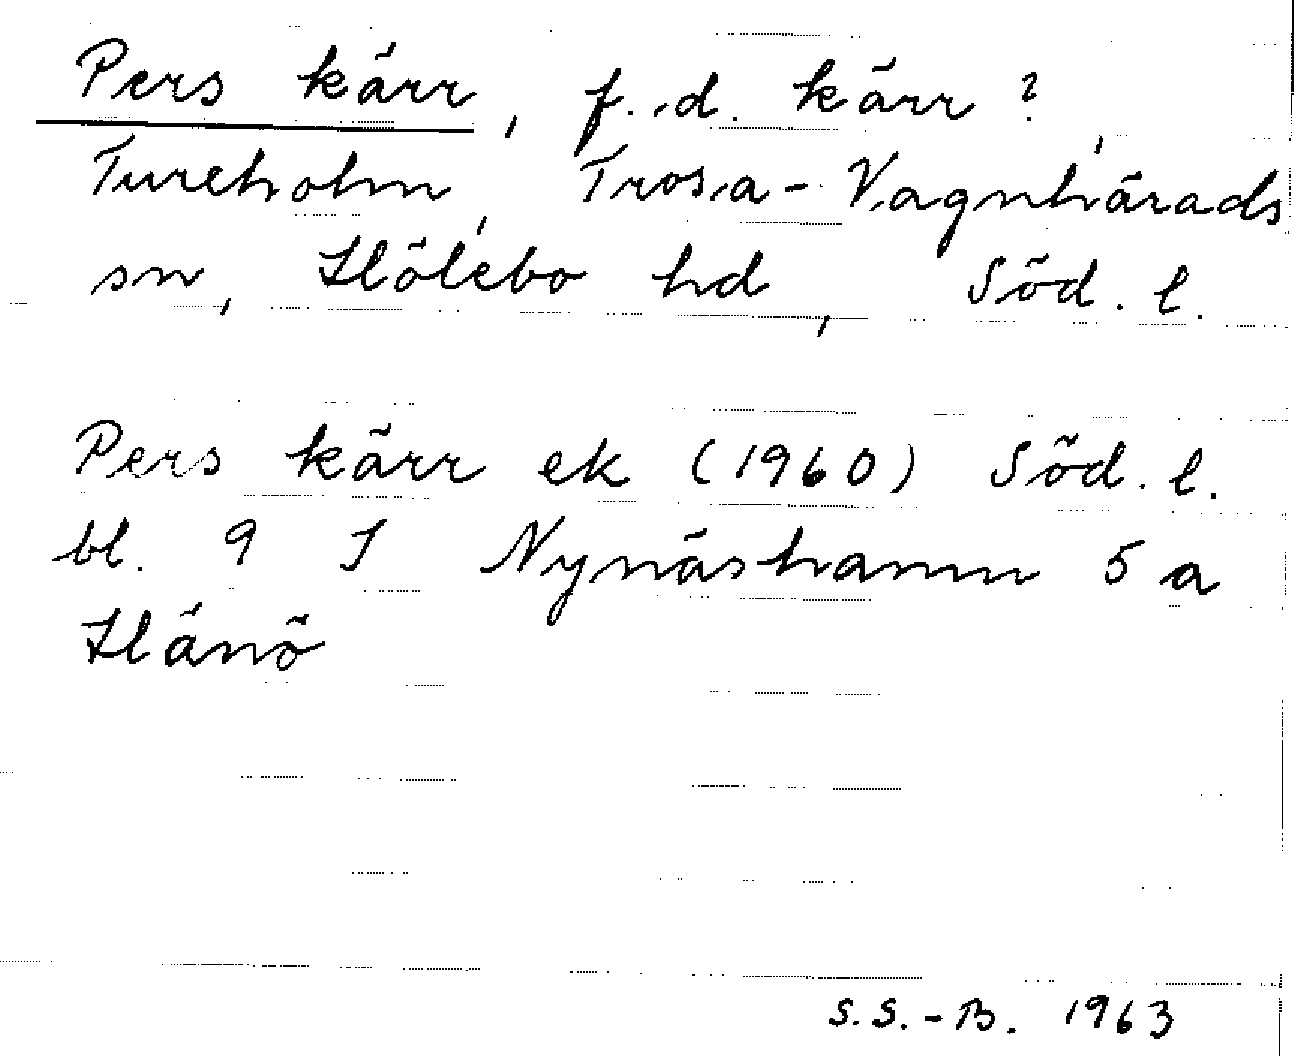 Pers kärr, f.d. kärr?,
Tureholm, Trosa-Vagnhärads
sn, Hölebo hd, Söd. l.
Pers kärr ek (1960) Söd. l.
bl. 9 I Nynäshamn 5 a
Hånö
S.S.-B. 1963